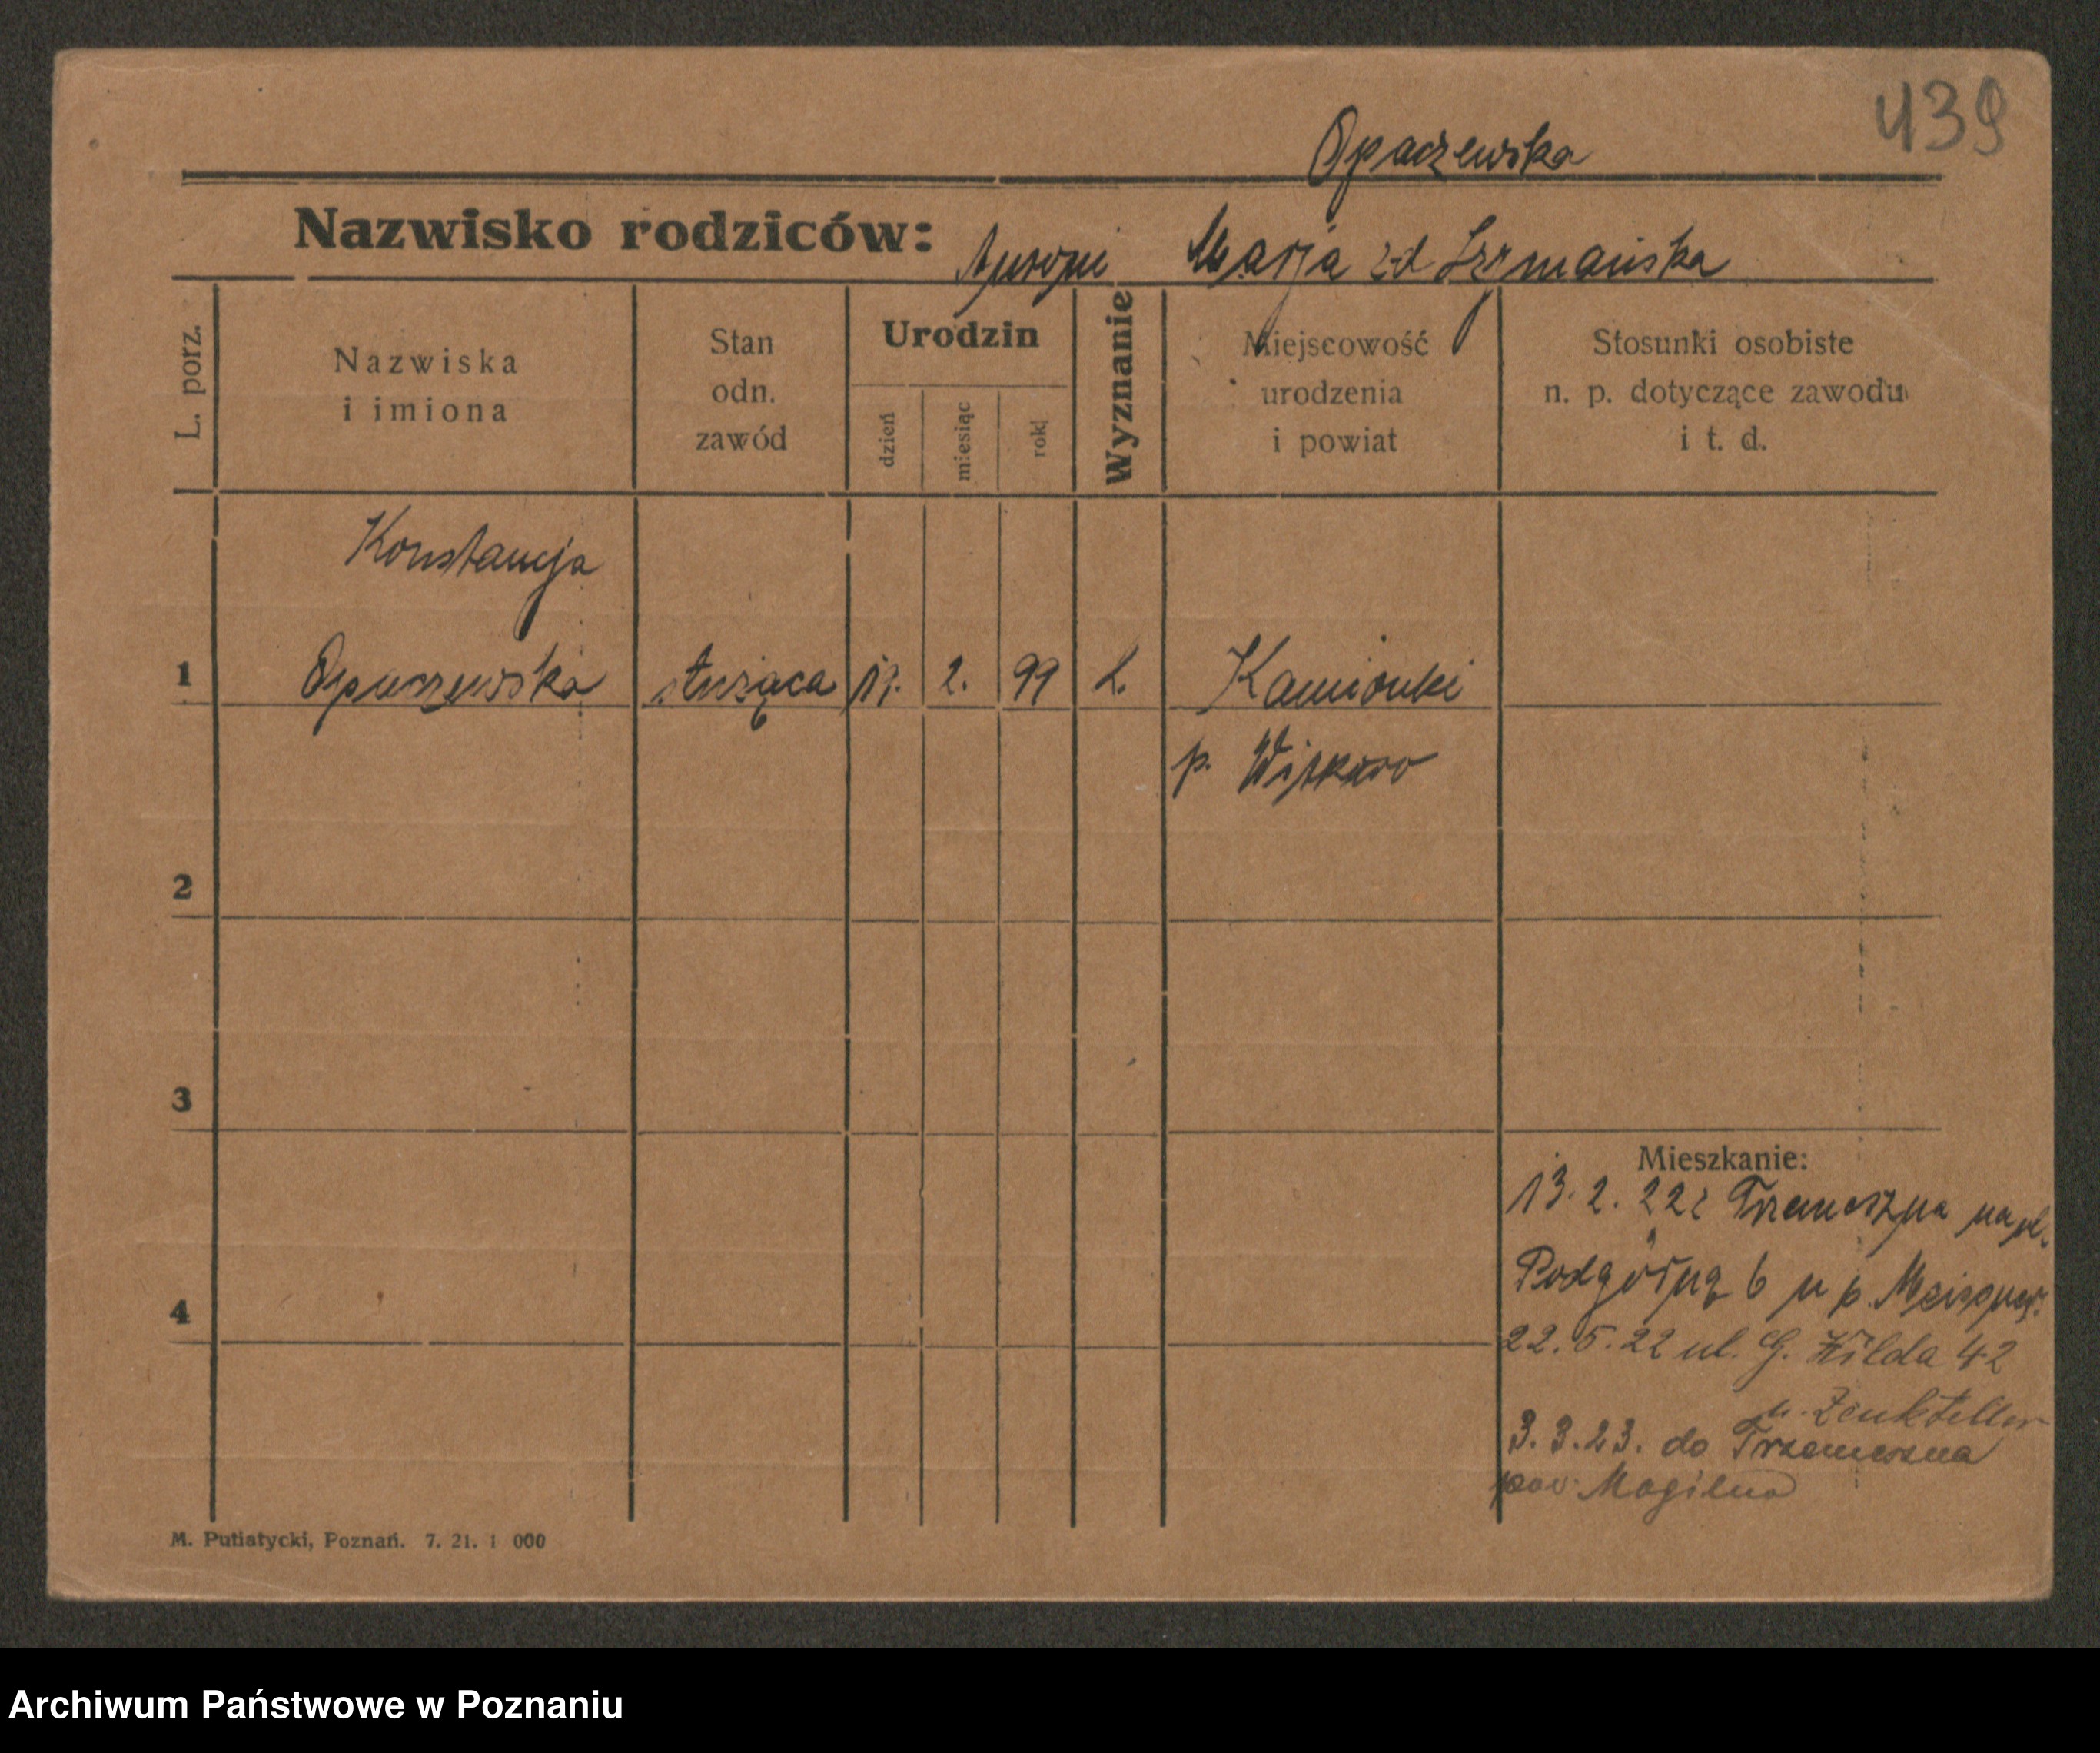 439
Opaczewska
Nazwisko rodziców: Antoni Marja zd Szymańska
L. porz.
Nazwiska
i imiona
Stan
odn.
zawód
Urodzin
dzień
miesiąc
rok
Wyznanie
Miejscowość
urodzenia
i powiat
Stosunki osobiste
n. p. dotyczące zawodu
i t. d.
Konstancja
1 Opaczewska służąca 19. 2. 99 k. Kamionki
p. Witkowo
2
3
Mieszkanie:
13. 2. 22 z Trzemeszna na pl.
4
Podgórną 6 u p.
22. 5. 22 ul. G. Wilda 42
u. Zenkteller
3. 3. 23. do Trzemeszna
pow. Mogilno
M. Putiatycki, Poznań. 7. 21. 1 000
Archiwum Państwowe w Poznaniu